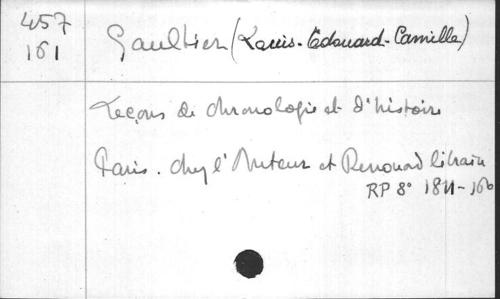 457
161
Gaultier (Louis-Edouard-Camille)
Leçons de chronologie et d'histoire
Paris. chez l'Auteur et Renouard libraire
RP 8° 1811-